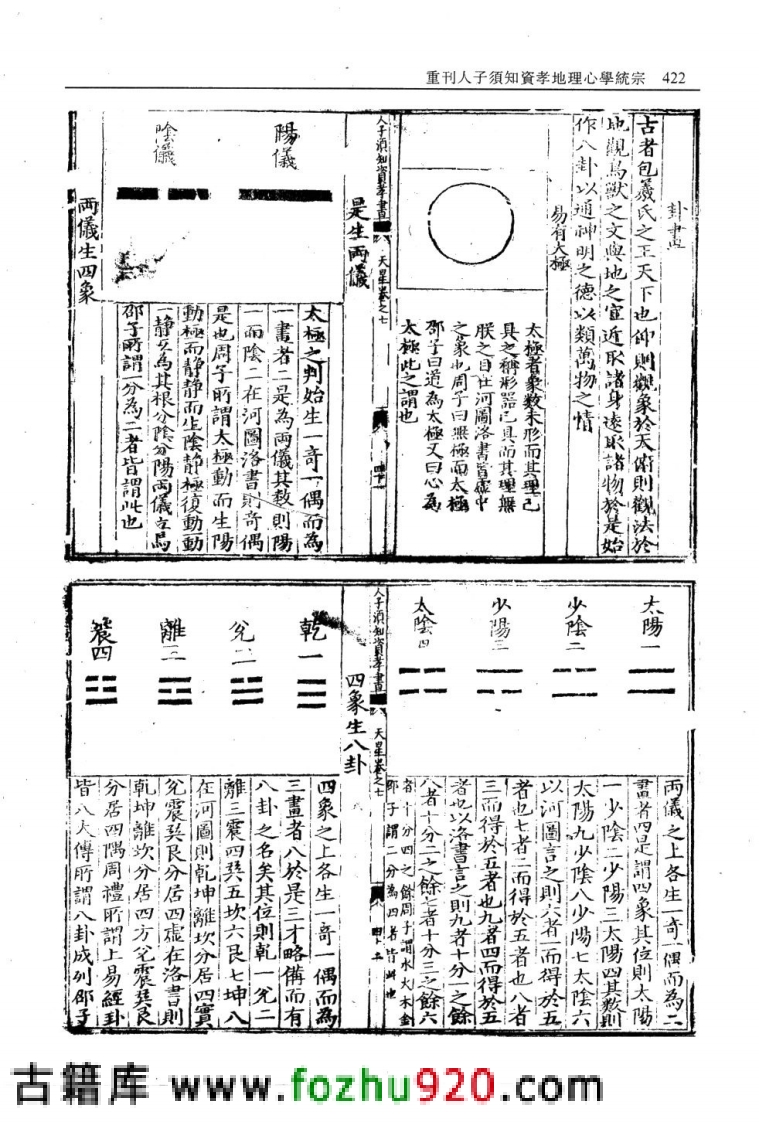 重刊人子須知資孝地理心學統宗 422
卦畫
古者包羲氏之王天下也仰則觀象於天俯則觀法於
地觀鳥獸之文與地之宜近取諸身遠取諸物於是始
作八卦以通神明之德以類萬物之情
易有太極
太極者象數未形而其理已
具之稱形器已具而其理無
朕之目在河圖洛書皆虛中
之象也周子曰無極而太極
邵子曰道為太極又曰心為
太極此之謂也
人子須知資孝書
天星卷之七
是生兩儀
陽儀
陰儀
太極之判始生一奇一偶而為
一畫者二是為兩儀其數則陽
一而陰二在河圖洛書則奇偶
是也周子所謂太極動而生陽
動極而静静而生陰静極復動動
一静互為其根分陰分陽兩儀立焉
邵子所謂一分為二者皆謂此也
兩儀生四象
太陽一
少陰二
少陽三
太陰四
兩儀之上各生一奇一偶而為二
畫者四是謂四象其位則太陽
一少陰二少陽三太陽四其數則
太陽九少陰八少陽七太陰六
以河圖言之則六者一而得於五
者也七者二而得於五者也八者
三而得於五者也九者四而得於五
者也以洛書言之則九者十分一之餘
八者十分二之餘七者十分三之餘六
者十分四之餘周子謂水火木金
邵子謂二分為四者皆此也
人子須知資孝書
天星卷之七
四象生八卦
乾一
兌二
離三
震四
四象之上各生一奇一偶而為
三畫者八於是三才略備而有
八卦之名矣其位則乾一兌二
離三震四巽五坎六艮七坤八
在河圖則乾坤離坎分居四實
兌震巽艮分居四虛在洛書則
乾坤離坎分居四方兌震巽艮
分居四隅周禮所謂上易經卦
皆八大傳所謂八卦成列邵子
古籍库 www.fozhu920.com